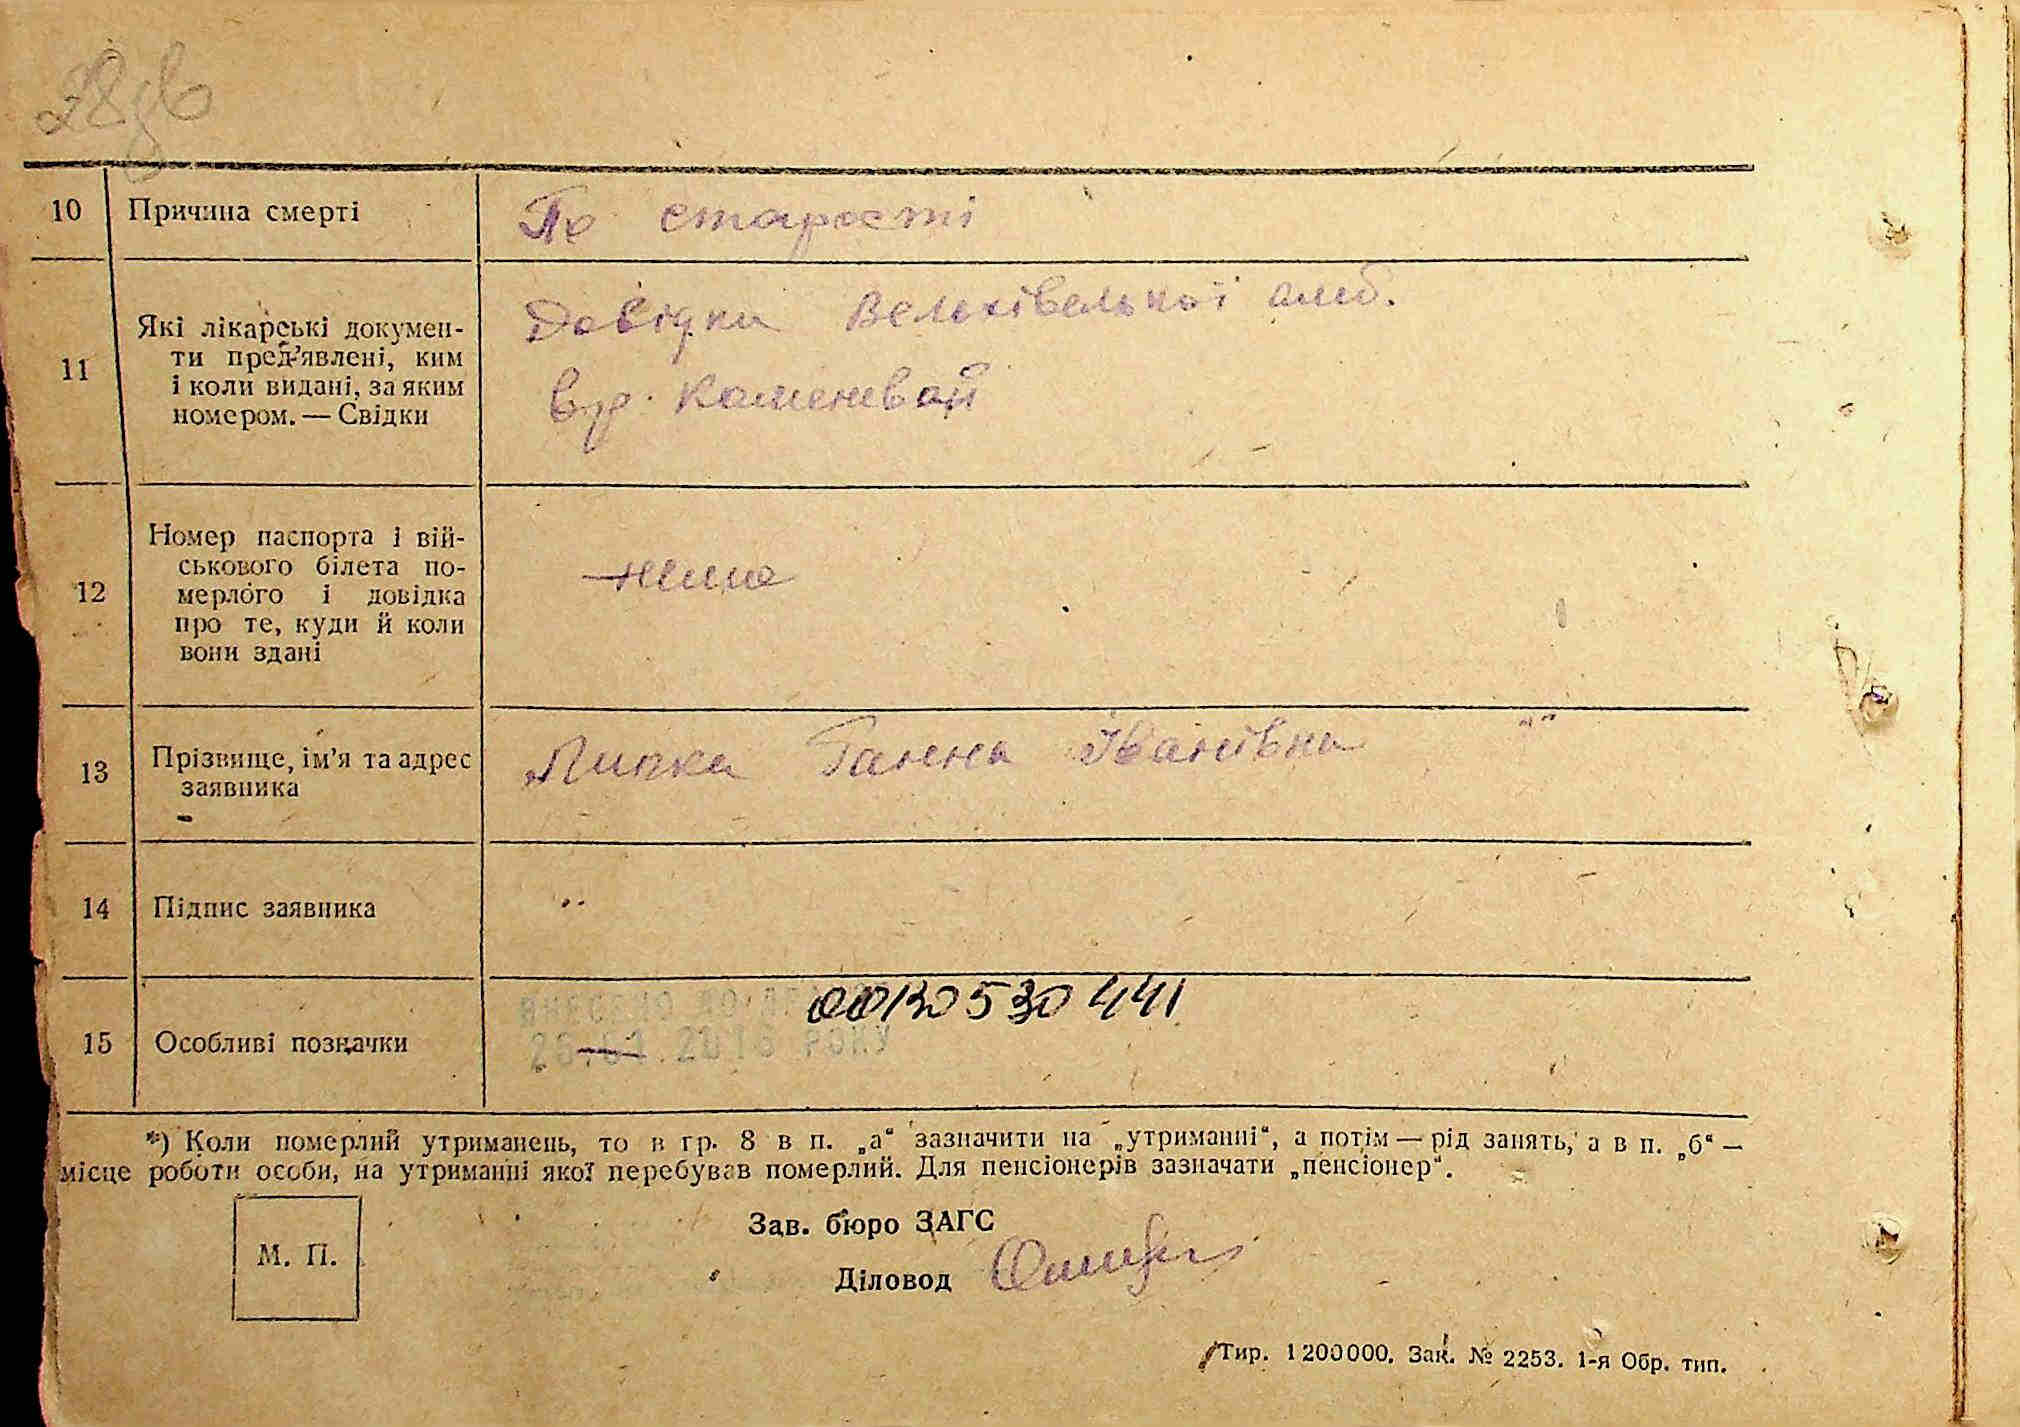 10 Причина смерті По старості
11 Які лікарські докумен-
ти пред’явлені, ким
і коли видані, за яким
номером. — Свідки
Довідка амб.
вр.
12 Номер паспорта і вій-
ськового білета по-
мерлого і довідка
про те, куди й коли
вони здані
нема
13 Прізвище, ім’я та адрес
заявника
Липка Ганна Іванівна
14 Підпис заявника
15 Особливі позначки
00130530441
ВНЕСЕНО ДО
2016 РОКУ
*) Коли померлий утриманець, то в гр. 8 в п. „а“ зазначити на „утриманні“, а потім — рід занять, а в п. „б“ —
місце роботи особи, на утриманні якої перебував померлий. Для пенсіонерів зазначати „пенсіонер“.
М. П.
Зав. бюро ЗАГС
Діловод
Тир. 1 200 000. Зак. № 2253. 1-я Обр. тип.